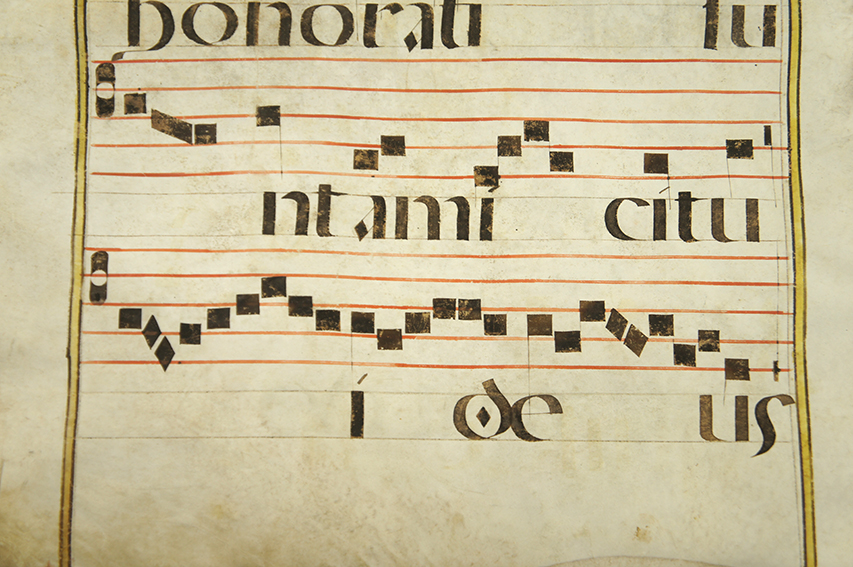 honorati su
nt amici tu
i de us